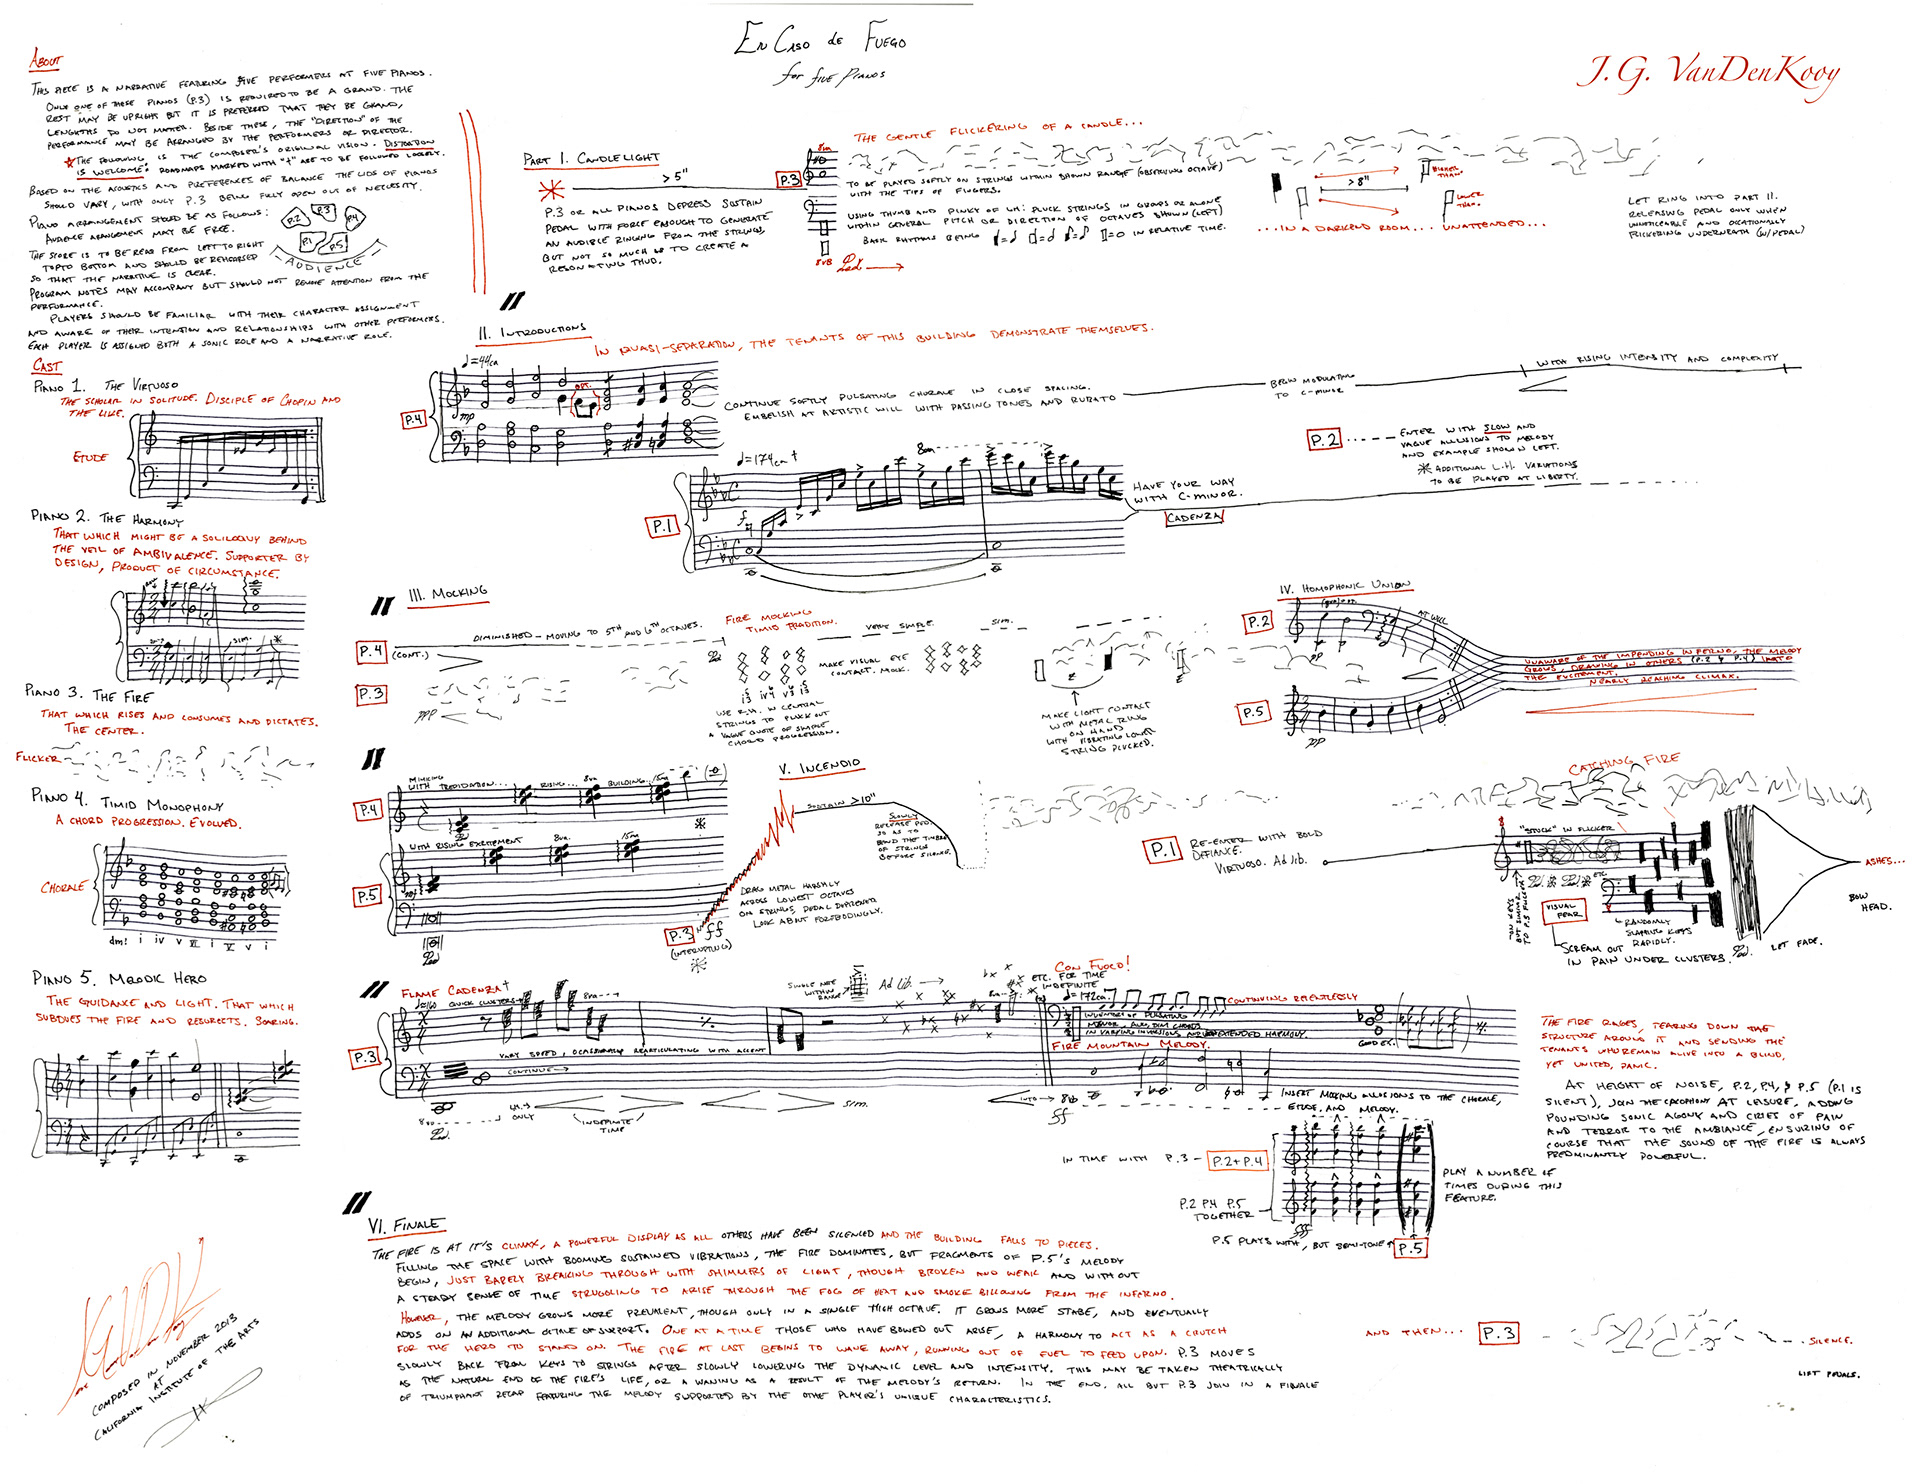 En Caso de Fuego
for five pianos
J.G. VanDenKooy
About
This piece is a narrative featuring five performers at five pianos.
Only one of these pianos (P.3) is required to be a grand. The
rest may be upright but it is preferred that they be grand,
lenghths do not matter. Beside these, the "direction" of the
performance may be arranged by the performers or director.
*The following is the composer's original vision. Distortion
is welcome. Roadmaps marked with "†" are to be followed loosely.
Based on the acoustics and preferences of balance the lids of pianos
should vary, with only P.3 being fully open out of necessity.
Piano arrangement should be as follows:
Audience arrangement may be free.
P.2 P.3 P.4
P.1 P.5
Audience
The score is to be read from left to right
top to bottom and should be rehearsed
so that the narrative is clear.
Program notes may accompany but should not remove attention from the
performance.
Players should be familiar with their character assignment
and aware of their intention and relationships with other performers.
Each player is assigned both a sonic role and a narrative role.
Cast
Piano 1. The Virtuoso
The scholar in solitude. Disciple of Chopin and
the like.
Etude
Piano 2. The Harmony
That which might be a soliloquy behind
the veil of ambivalence. Supporter by
design, product of circumstance.
sim.
Piano 3. The Fire
That which rises and consumes and dictates.
The center.
Flicker
Piano 4. Timid Monophony
A chord progression. Evolved.
Chorale
dm: i iv v VI i V v i
Piano 5. Melodic Hero
The guidance and light. That which
subdues the fire and resurrects. Soaring.
Composed in November 2013
at
California Institute of the Arts
Part I. Candlelight
> 5"
P.3 or all pianos depress sustain
pedal with force enough to generate
an audible ringing from the strings,
but not so much as to create a
resonating thud.
P.3
8va
8vb
Ped.
The gentle flickering of a candle...
To be played softly on strings within shown range (observing octave)
with the tips of fingers.
Using thumb and pinky of LH: pluck strings in groups or alone
within general pitch or direction of octaves shown (left)
Basic rhythms being in relative time.
> 8"
Higher than.
Lower than.
...in a darkened room... unattended...
Let ring into Part II.
Releasing pedal only when
unnoticeable and occationally
flickering underneath (w/pedal)
II. Introductions
In quasi-separation, the tenants of this building demonstrate themselves.
♩=44ca
P.4
mp
opt.
Continue softly pulsating chorale in close spacing.
Embelish at artistic will with passing tones and rubato
Begin modulating
to c-minor
with rising intensity and complexity
P.1
♩=174ca †
f
8va
Have your way
with c-minor.
Cadenza
P.2
Enter with slow and
vague allusions to melody
and example shown left.
* Additional L.H. variations
to be played at liberty.
III. Mocking
P.4
(cont.)
Diminished - moving to 5th and 6th octaves.
P.3
ppp
Fire mocking
timid tradition.
Ped
Very simple.
sim.
Make visual eye
contact. Mock.
Use R.H. in central
strings to pluck out
a vague quote of simple
chord progression.
Make light contact
with metal ring
on hand
with vibrating lower
string plucked.
IV. Homophonic Union
P.2
pp
At will
P.5
pp
Unaware of the impending inferno, the melody
grows, drawing in others (P.2 & P.4) into
the excitement.
Nearly reaching climax.
P.4
Miming
with trepidation... rising... 8va building... 15ma
P.5
With rising excitement 8va 15ma
Ped
V. Incendio
P.3
ff
(interrupting)
Sustain >10"
Slowly
release ped.
so as to
bend the timbre
of strings
before silence.
Drag metal harshly
across lowest octaves
on strings, pedal depressed
Look about forebodingly.
P.1
Re-enter with bold
defiance.
Virtuoso. Ad lib.
Catching fire
"Stuck" in flicker
on keys
but similar
to P.3 flicker
Visual
fear
Randomly
slapping keys
rapidly.
Scream out
in pain under clusters.
Ped.
Let fade.
Ashes...
Bow
head.
Flame Cadenza†
P.3
Quick clusters
8va
Vary speed, occasionally rearticulating with accent
Continue
8vb
Ped.
L.H. only
indefinite
time
sim.
Single note
within
range
Ad Lib.
etc. for time
indefinite
Con Fuoco!
♩=172ca.
Continuing relentlessly
Minor, aug, dim chords
in varying inversions and extended harmony.
Good ex.
Fire mountain melody.
into
8vb
ff
Insert mocking allusions to the chorale,
etude, and melody.
In time with P.3 - P.2+P.4
P.2 P.4 P.5
together
fff
P.5 plays with, but semi-tone
P.5
Play a number of
times during this
feature.
The fire rages, tearing down the
structure around it and sending the
tenants who remain alive into a blind,
yet united, panic.
At height of noise, P.2, P.4, & P.5 (P.1 is
silent), join the cacophony at leisure, adding
pounding sonic agony and cries of pain
and terror to the ambiance, ensuring of
course that the sound of the fire is always
predominantly powerful.
VI. Finale
The fire is at it's climax, a powerful display as all others have been silenced and the building falls to pieces.
Filling the space with booming sustained vibrations, the fire dominates, but fragments of P.5's melody
begin, just barely breaking through with shimmers of light, though broken and weak and without
a steady sense of time struggling to arise through the fog of heat and smoke billowing from the inferno.
However, the melody grows more prevalent, though only in a single high octave. It grows more stable, and eventually
adds on an additional octave of support. One at a time those who have bowed out arise, a harmony to act as a crutch
for the hero to stand on. The fire at last begins to wane away, running out of fuel to feed upon. P.3 moves
slowly back from keys to strings after slowly lowering the dynamic level and intensity. This may be taken theatrically
as the natural end of the fire's life, or a waning as a result of the melody's return. In the end, all but P.3 join in a finale
of triumphant recap featuring the melody supported by the othe player's unique characteristics.
And then... P.3
Silence.
Lift pedals.